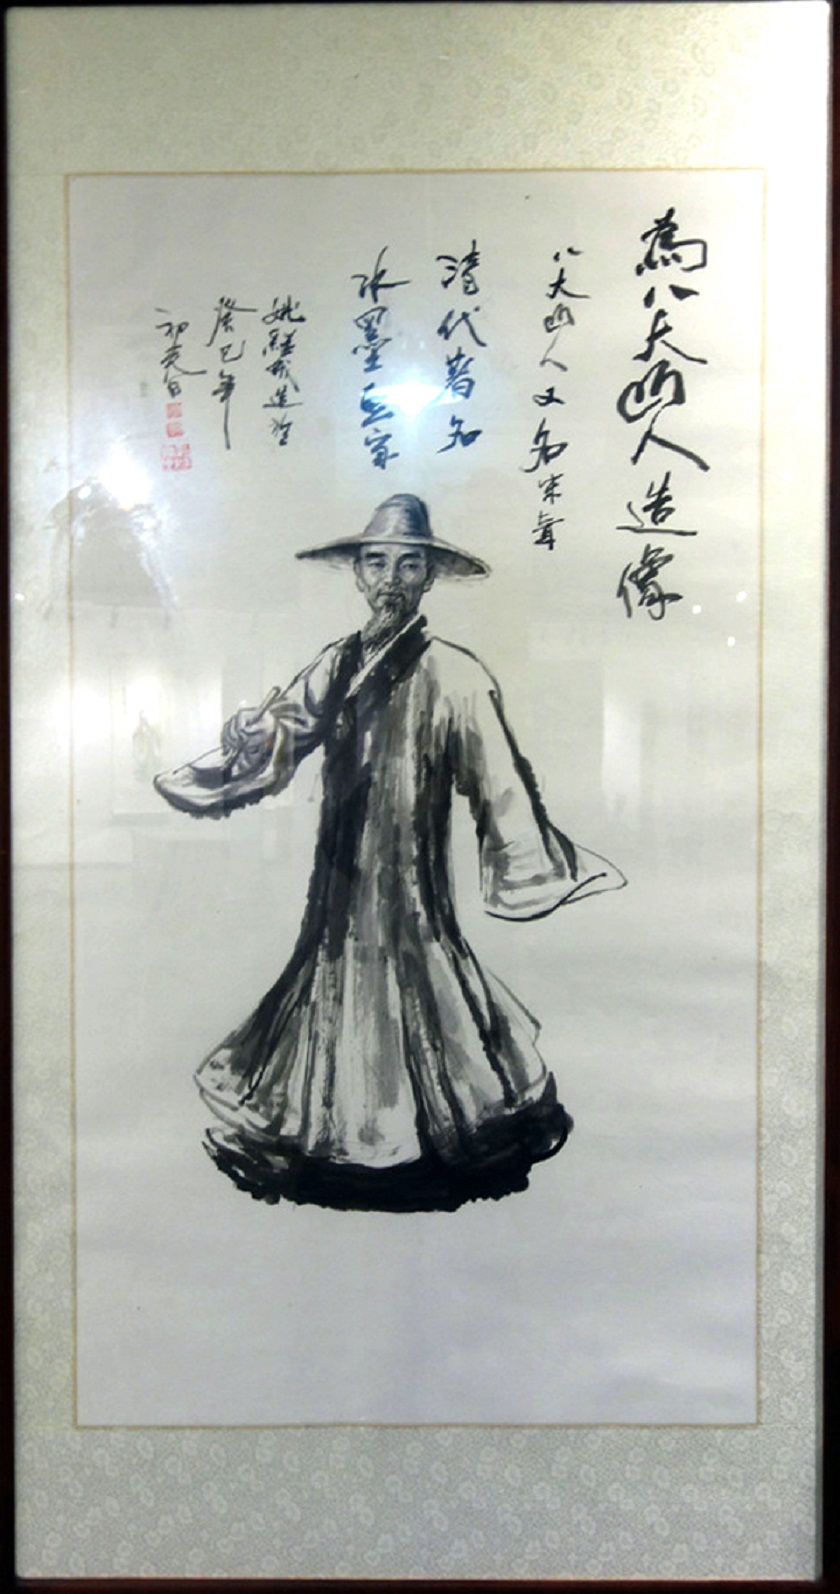 為八大山人造像
八大山人又名朱耷
清代著名
水墨画家
姚
癸巳年
初